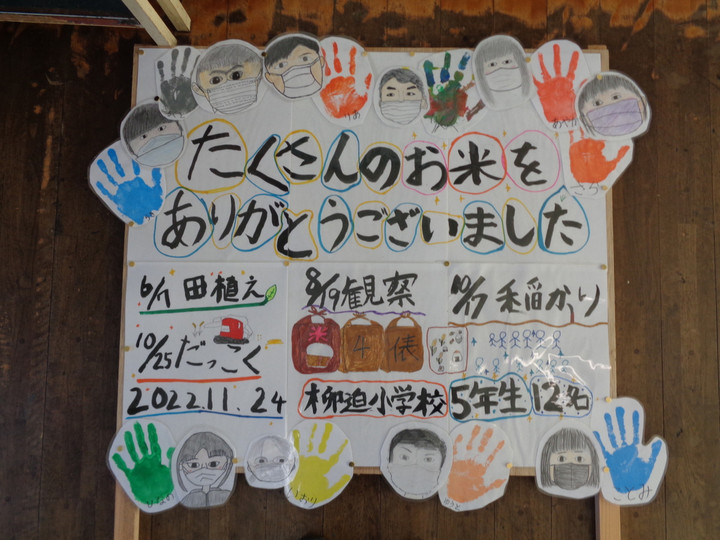 たくさんのお米を
ありがとうございました
6/1 田植え
8/19 観察
10/17 稲かり
10/25 だっこく
米 4 俵
2022.11.24 柳迫小学校 5年生 12名
りあ
あやか
さら
かおり
こじみ